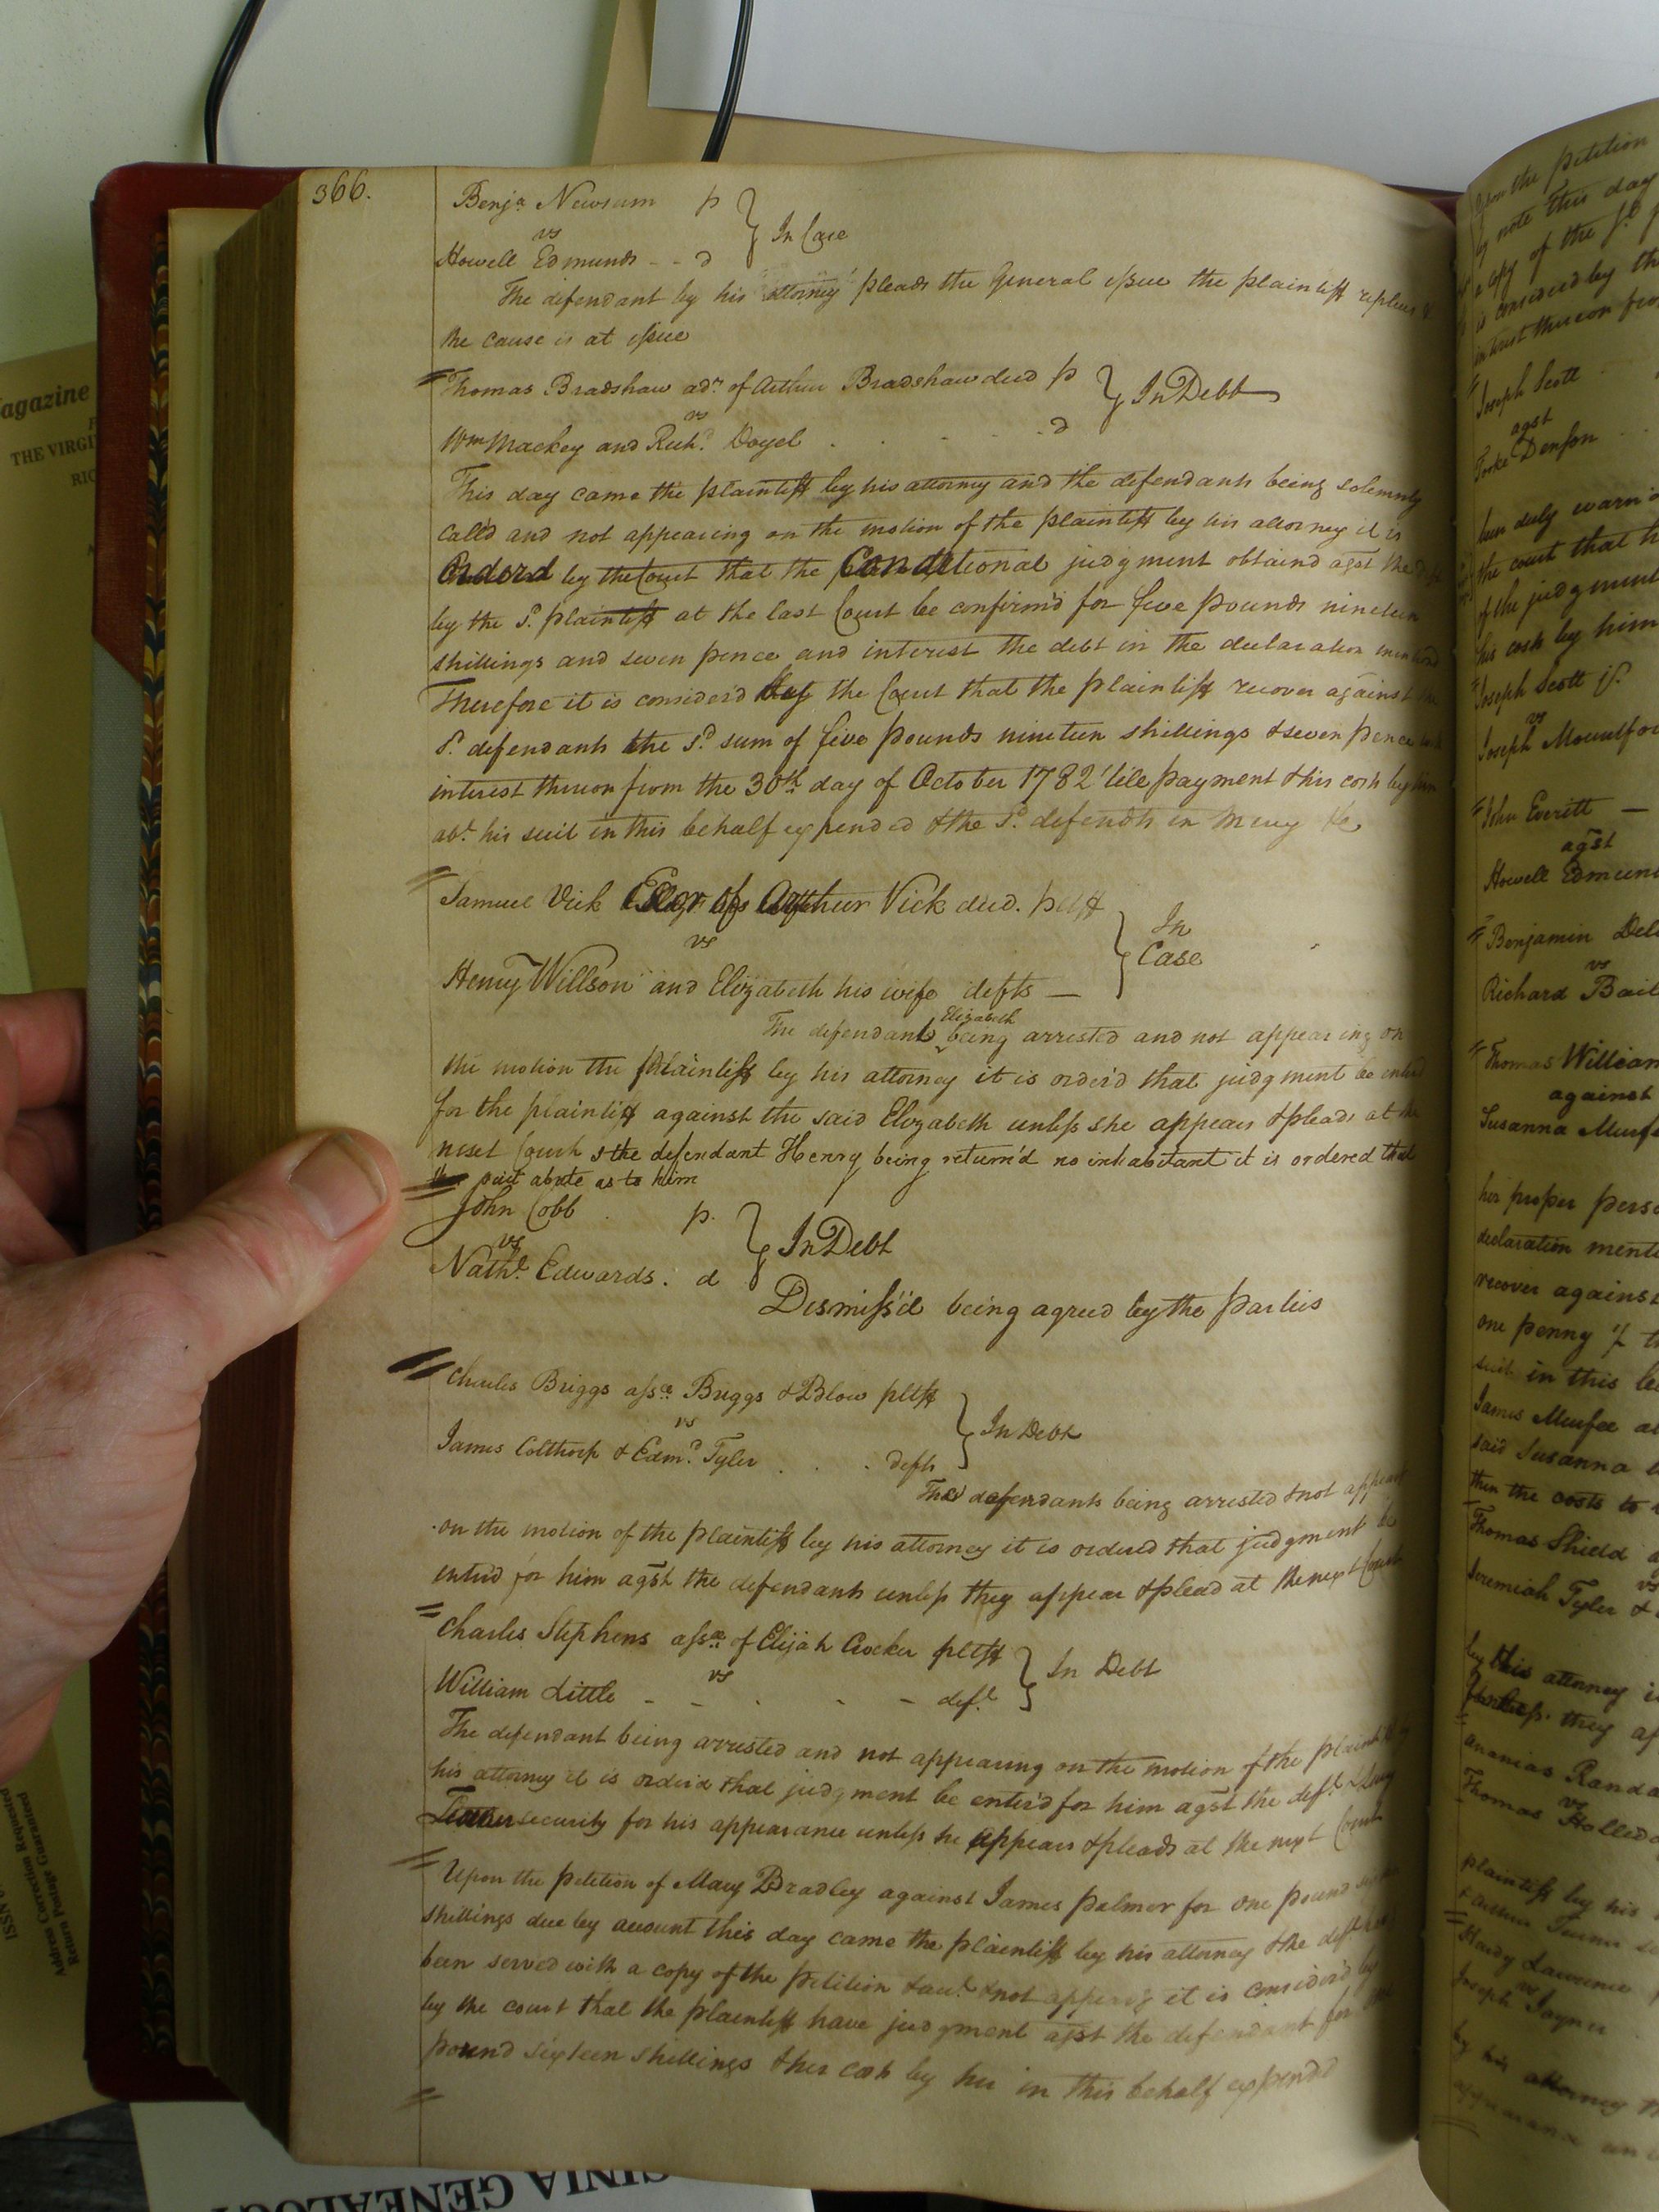 366.
Benja. Newsum p } In Case
vs
Howell Edmunds - - d
The defendant by his attorney pleads the General issue the plaintiff replies &
the cause is at issue
Thomas Bradshaw adr. of Arthur Bradshaw decd p } In Debt
vs
Wm Mackey and Richd. Doyel . . . . d
This day came the plaintiff by his attorney and the defendants being solemnly
call'd and not appearing on the motion of the plaintiff by his attorney it is
Orderd by the Court that the Conditional judgment obtaind agst the
by the Sd. plaintiff at the last Court be confirm'd for five pounds nineteen
shillings and seven pence and interest the debt in the declaration mentiond
Therefore it is consider'd by the Court that the plaintiff recover against the
Sd. defendants the sd. sum of five pounds nineteen shillings & seven pence
interest thereon from the 30th day of October 1782 'till payment & his costs by him
abt. his suit in this behalf expended & the sd. defendts in mercy &c
Samuel Vick Exor of Arthur Vick decd. pltff } In Case
vs
Henry Willson and Elizabeth his wife defts —
The defendant Elizabeth being arrested and not appearing on
the motion the plaintiff by his attorney it is order'd that judgment be enterd
for the plaintiff against the said Elizabeth unless she appears & pleads at the
next Court & the defendant Henry being return'd no inhabitant it is ordered that
the suit abate as to him
John Cobb . p. } In Debt
vs
Nathl. Edwards . d
Dismiss'd being agreed by the parties
Charles Briggs assee. Briggs & Blow pltff } In Debt
vs
James Colthorp & Edmd. Tyler . . . defts
The defendants being arrested & not appear
on the motion of the plaintiff by his attorney it is ordered that judgment be
enterd for him agst the defendants unless they appear & plead at the next Court
Charles Stephens assee. of Elijah Crocker pltff } In Debt
vs
William Little - - . - - deft.
The defendant being arrested and not appearing on the motion of the plaintiff by
his attorney it is order'd that judgment be enter'd for him agst the deft. &
security for his appearance unless he appears & pleads at the next Court
Upon the petition of Mary Bradley against James Palmer for one pound
shillings due by account this day came the plaintiff by his attorney & the deft
been served with a copy of the petition & acct. & not appearg it is consider'd by
by the court that the plaintiff have judgment agst the defendant for
pound sixteen shillings & her costs by her in this behalf expended
Upon the petition
by note this day
a copy of the sd.
is considered by the
interest thereon from
Joseph Scott
agst
Denson
been duly warn'd
the court that
of the judgment
his costs by him
Joseph Scott
vs
Joseph Mountfor
John Everitt —
agst
Howell Edmun
Benjamin
vs
Richard Bail
Thomas William
against
Susanna
her proper pers
declaration ment
recover against
one penny
suit in this be
James Murfee
said Susanna
then the costs to
Thomas Shield
vs
Jeremiah Tyler &
by his attorney
unless they ap
Ananias Randa
vs
Thomas Hollida
plaintiff by his
Hardy Lawrence
vs
Joseph Joyner
by his attorney
appearance
agazine
THE VIRGI
RIC
ISSN
Address Correction Requested
Return Postage Guaranteed
GINIA GENEALOG